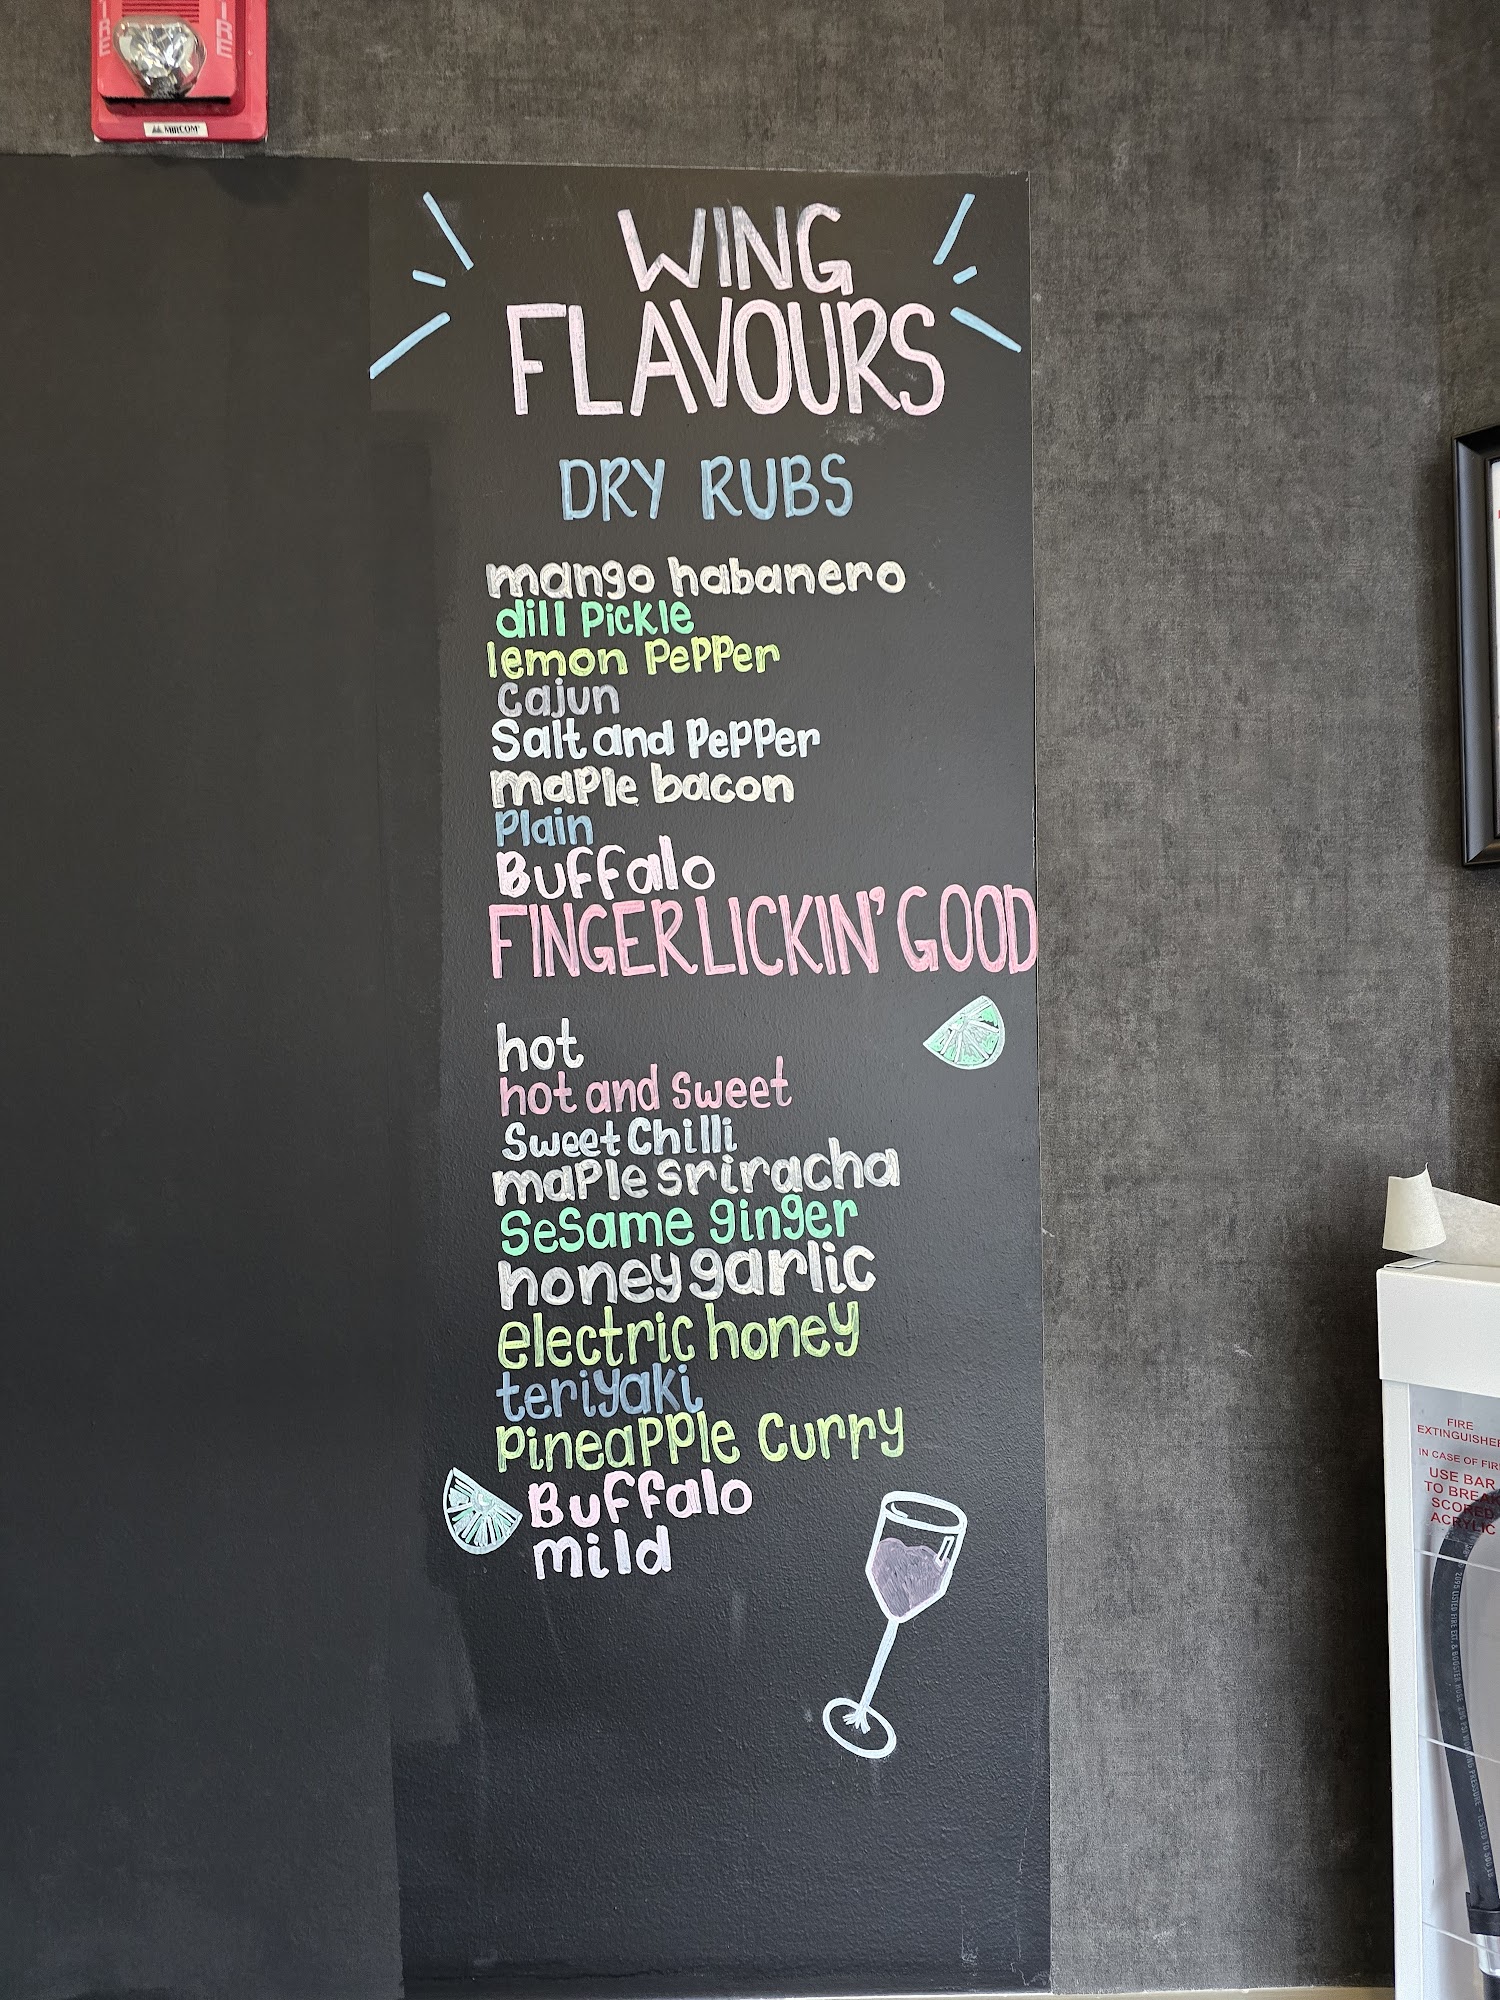 FIRE
FIRE
MIRCOM
WING
FLAVOURS
DRY RUBS
mango habanero
dill Pickle
lemon PePPer
Cajun
Salt and PePPer
maPle bacon
Plain
Buffalo
FINGER LICKIN' GOOD
hot
hot and Sweet
Sweet Chilli
maPle sriracha
SeSame ginger
honey garlic
electric honey
teriyaki
PineaPPle Curry
Buffalo
mild
FIRE
EXTINGUISHER
IN CASE OF FIRE
USE BAR
TO BREAK
SCORED
ACRYLIC